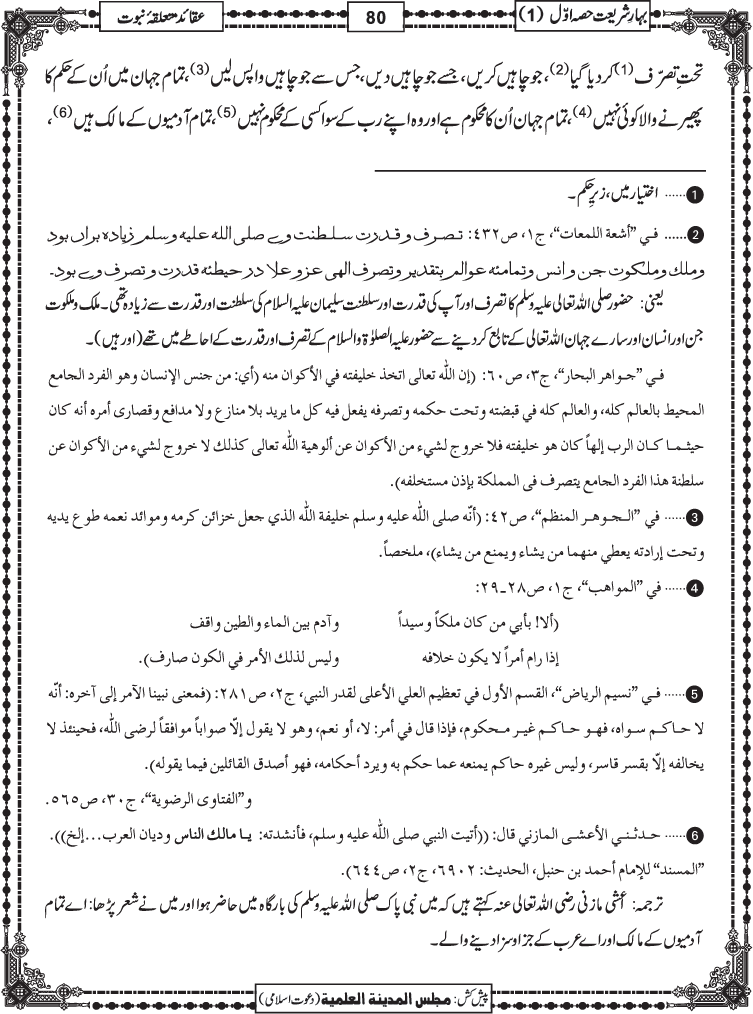 بہارِ شریعت حصہ اوّل (1)
80
عقائد متعلقۂ نبوت
تحتِ تصرّف (1) کر دیا گیا (2)، جو چاہیں کریں، جسے جو چاہیں دیں، جس سے جو چاہیں واپس لیں (3)، تمام جہان میں اُن کے حکم کا
پھیرنے والا کوئی نہیں (4)، تمام جہان اُن کا محکوم ہے اور وہ اپنے رب کے سوا کسی کے محکوم نہیں (5)، تمام آدمیوں کے مالک ہیں (6)،
1 ...... اختیار میں، زیرِ حکم۔
2 ...... فی ”أشعة اللمعات“، ج١، ص٤٣٢: تصرف و قدرت سلطنت وے صلی اللہ علیہ وسلم زیادہ براں بود
وملك وملكوت جن و انس وتمامئہ عوالم بتقدیر وتصرف الہی عزوعلا در حیطئہ قدرت و تصرف وے بود۔
یعنی: حضور صلی اللہ تعالی علیہ وسلم کا تصرف اور آپ کی قدرت اور سلطنت سلیمان علیہ السلام کی سلطنت اور قدرت سے زیادہ تھی۔ ملک و ملکوت
جن اور انسان اور سارے جہان اللہ تعالی کے تابع کر دینے سے حضور علیہ الصلوٰۃ والسلام کے تصرف اور قدرت کے احاطے میں تھے (اور ہیں)۔
فی ”جواهر البحار“، ج٣، ص٦٠: (إن اللّٰہ تعالی اتخذ خلیفته في الأكوان منه (أي: من جنس الإنسان وهو الفرد الجامع
المحیط بالعالم كله، والعالم كله في قبضته وتحت حكمه وتصرفه يفعل فيه كل ما يريد بلا منازع ولا مدافع وقصارى أمره أنه كان
حيثما كان الرب إلهاً كان هو خليفته فلا خروج لشيء من الأكوان عن ألوهية اللّٰہ تعالى كذلك لا خروج لشيء من الأكوان عن
سلطنة هذا الفرد الجامع يتصرف فی المملكة بإذن مستخلفه).
3 ...... في ”الجوهر المنظم“، ص٤٢: (أنّه صلی اللّٰہ علیه وسلم خليفة اللّٰہ الذي جعل خزائن كرمه وموائد نعمه طوع يديه
وتحت إرادته يعطي منهما من يشاء ويمنع من يشاء)، ملخصاً.
4 ...... في ”المواهب“، ج١، ص٢٨ـ٢٩:
(ألا! بأبي من كان ملكاً وسيداً وآدم بين الماء والطين واقف
إذا رام أمراً لا يكون خلافه وليس لذلك الأمر في الكون صارف).
5 ...... فی ”نسيم الرياض“، القسم الأول في تعظيم العلي الأعلى لقدر النبي، ج٢، ص٢٨١: (فمعنى نبينا الآمر إلى آخره: أنّه
لا حاكم سواه، فهو حاكم غير محكوم، فإذا قال في أمر: لا، أو نعم، وهو لا يقول إلّا صواباً موافقاً لرضى اللّٰہ، فحينئذ لا
يخالفه إلّا بقسر قاسر، وليس غيره حاكم يمنعه عما حكم به ويرد أحكامه، فهو أصدق القائلين فيما يقوله).
و”الفتاوى الرضوية“، ج٣٠، ص٥٦٥.
6 ...... حدثني الأعشى المازني قال: ((أتيت النبي صلى اللّٰہ عليه وسلم، فأنشدته: يا مالك الناس وديان العرب...إلخ)).
”المسند“ للإمام أحمد بن حنبل، الحديث: ٦٩٠٢، ج٢، ص٦٤٤).
ترجمہ: أعشی مازنی رضی اللہ تعالی عنہ کہتے ہیں کہ میں نبی پاک صلی اللہ علیہ وسلم کی بارگاہ میں حاضر ہوا اور میں نے شعر پڑھا: اے تمام
آدمیوں کے مالک اور اے عرب کے جزا و سزا دینے والے۔
پیش کش: مجلس المدينة العلمية (دعوت اسلامی)